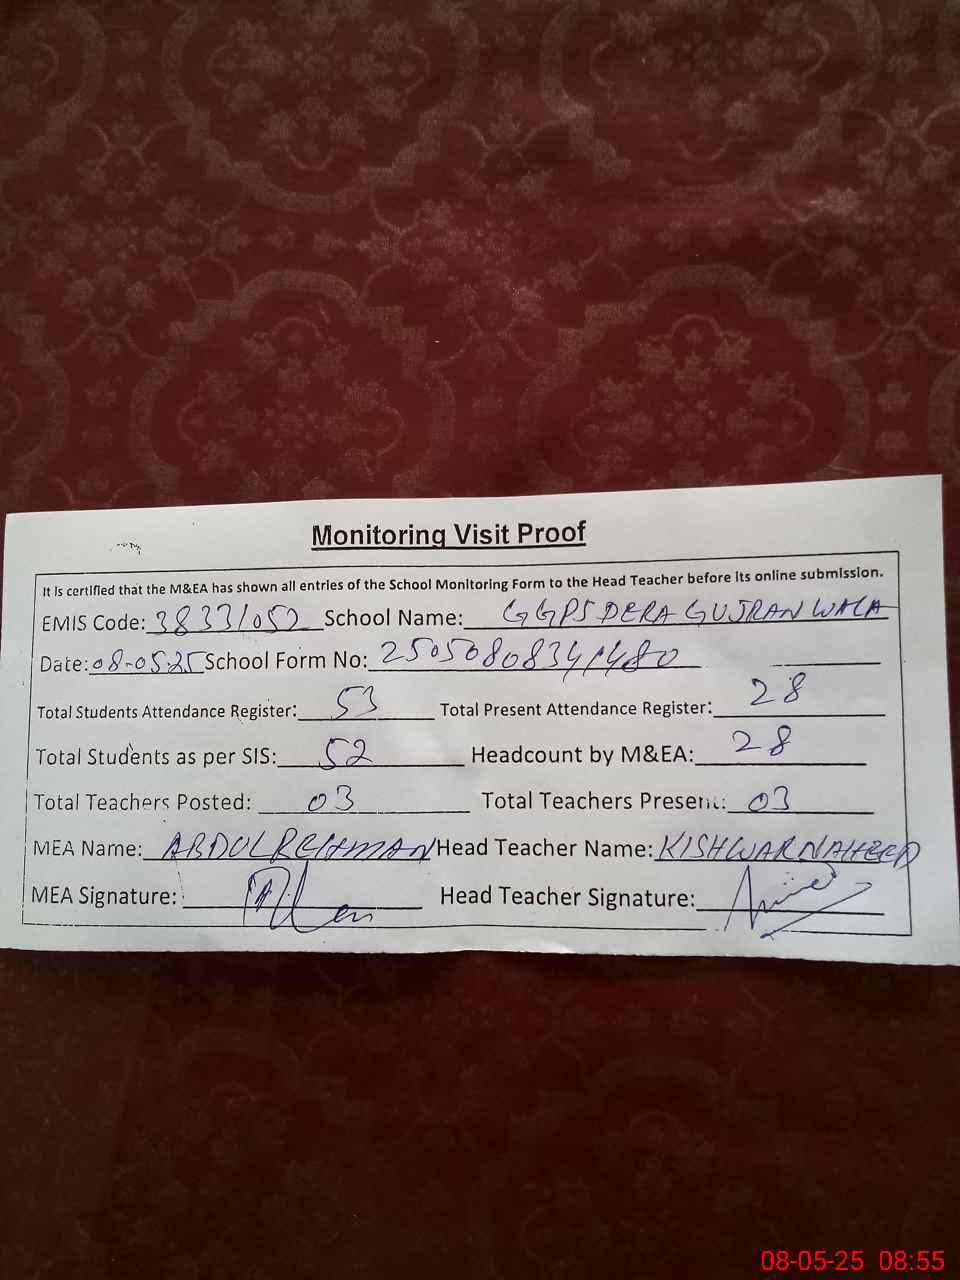 Monitoring Visit Proof
It is certified that the M&EA has shown all entries of the School Monitoring Form to the Head Teacher before its online submission.
EMIS Code: 38331052 School Name: GGPS DERA GUJRANWALA
Date: 08-05-25 School Form No:
Total Students Attendance Register: 53 Total Present Attendance Register: 28
Total Students as per SIS: 52 Headcount by M&EA: 28
Total Teachers Posted: 03 Total Teachers Present: 03
MEA Name: ABDUL REHMAN Head Teacher Name: KISHWAR NAHEED
MEA Signature: Head Teacher Signature:
08-05-25 08:55